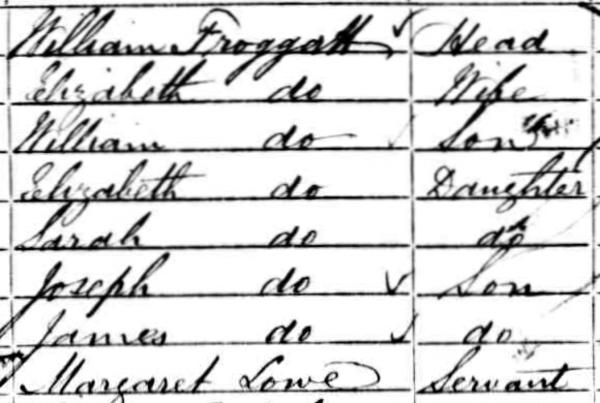 William Froggatt Head
Elizabeth do Wife
William do Son
Elizabeth do Daughter
Sarah do do
Joseph do Son
James do do
Margaret Lowe Servant